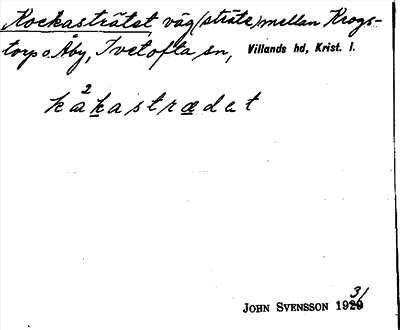 Kockasträtet väg (sträte) mellan Krogs-
torp o. Åby, Ivetofta sn, Villands hd, Krist. l.
kå²kastrædet
JOHN SVENSSON 1931